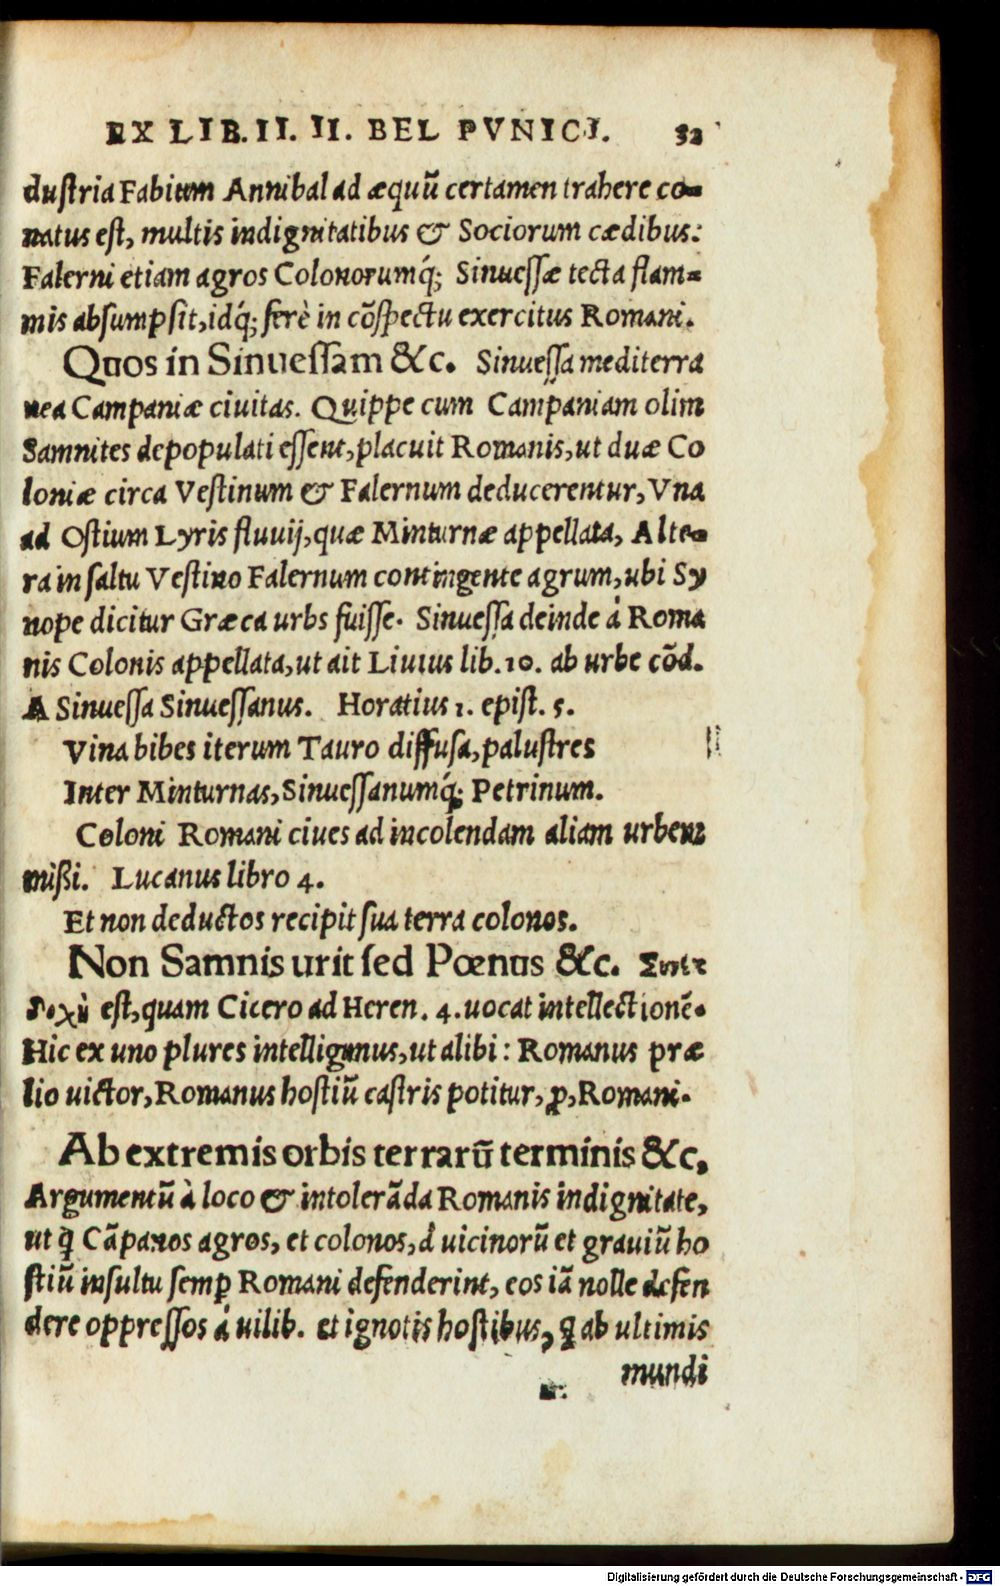 EX LIB. II. II. BEL PVNICI. 32
dustria Fabium Annibal ad æquũ certamen trahere co-
natus est, multis indignitatibus & Sociorum cædibus:
Falerni etiam agros Colonorumq́; Sinuessæ tecta flam-
mis absumpsit, idq́; ferè in cõspectu exercitus Romani.
Quos in Sinuessam &c. Sinuessa mediterra
nea Campaniæ ciuitas. Quippe cum Campaniam olim
Samnites depopulati essent, placuit Romanis, ut duæ Co
loniæ circa Vestinum & Falernum deducerentur, Vna
ad Ostium Lyris fluuij, quæ Minturnæ appellata, Alte-
ra in saltu Vestino Falernum contingente agrum, ubi Sy
nope dicitur Græca urbs fuisse. Sinuessa deinde à Roma
nis Colonis appellata, ut ait Liuius lib. 10. ab urbe cõd.
A Sinuessa Sinuessanus. Horatius 1. epist. 5.
Vina bibes iterum Tauro diffusa, palustres
Inter Minturnas, Sinuessanumq́; Petrinum.
Coloni Romani ciues ad incolendam aliam urbem
mißi. Lucanus libro 4.
Et non deductos recipit sua terra colonos.
Non Samnis urit sed Pœnus &c.
est, quam Cicero ad Heren. 4. uocat intellectionẽ.
Hic ex uno plures intelligimus, ut alibi: Romanus præ
lio uictor, Romanus hostiũ castris potitur, ꝓ, Romani.
Ab extremis orbis terrarũ terminis &c.
Argumentũ à loco & intolerãda Romanis indignitate,
ut ꝗ̃ Cãpanos agros, et colonos, à uicinorũ et grauiũ ho
stiũ insultu semꝑ Romani defenderint, eos iã nolle defen
dere oppressos à uilib. et ignotis hostibus, ꝗ ab ultimis
mundi
Digitalisierung gefördert durch die Deutsche Forschungsgemeinschaft - DFG